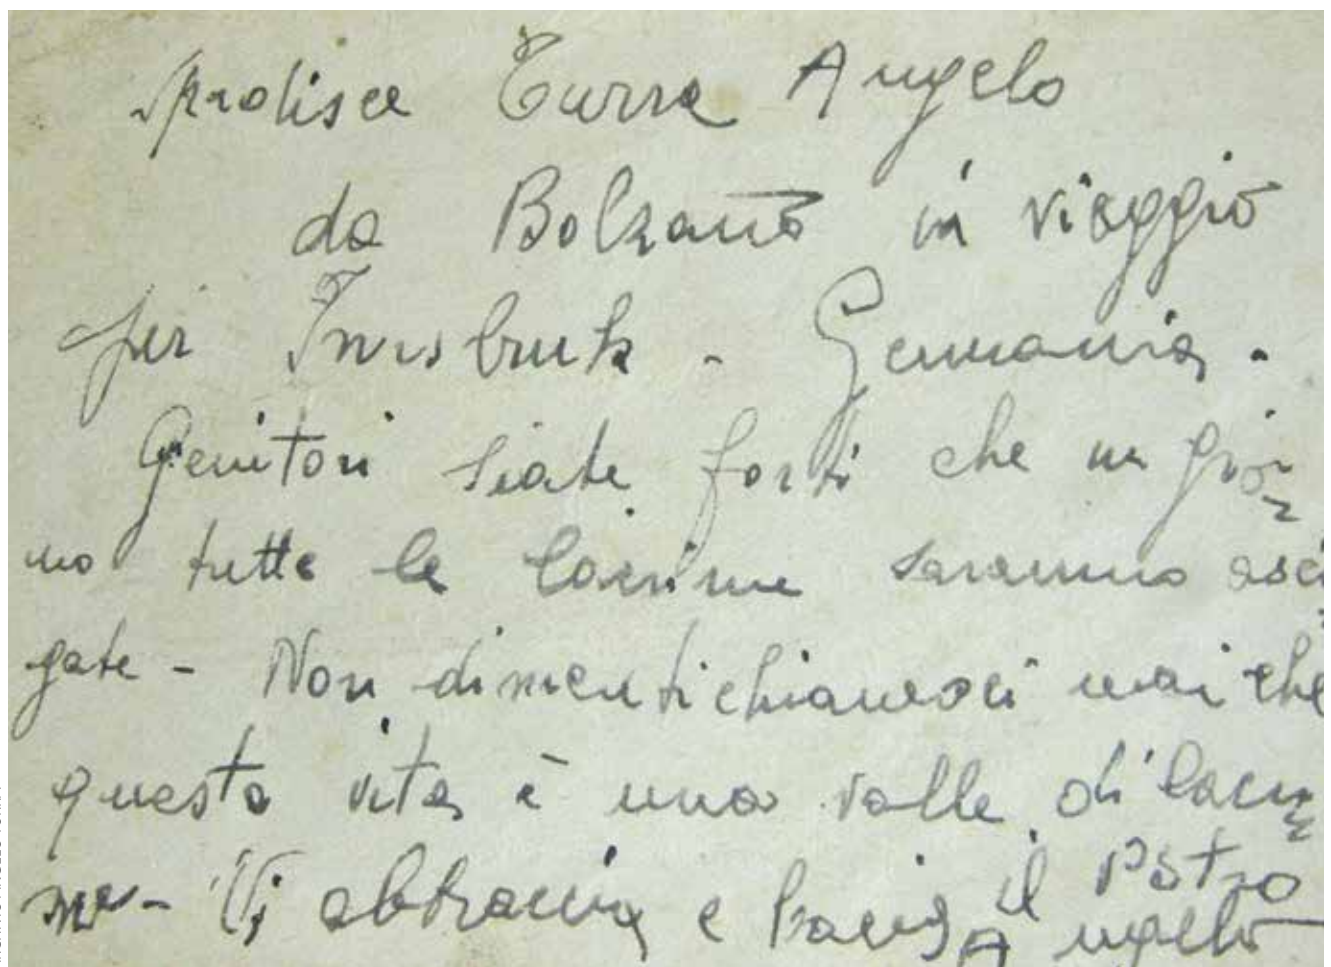 spedisce Turra Angelo
da Bolzano in viaggio
per Innsbruk - Germania.
Genitori siate forti che un gior=
no tutte le lacrime saranno asciu
gate - Non dimentichiamoci mai che
questa vita è una valle di lacri=
me - Vi abbraccia e bacia il vostro
Angelo